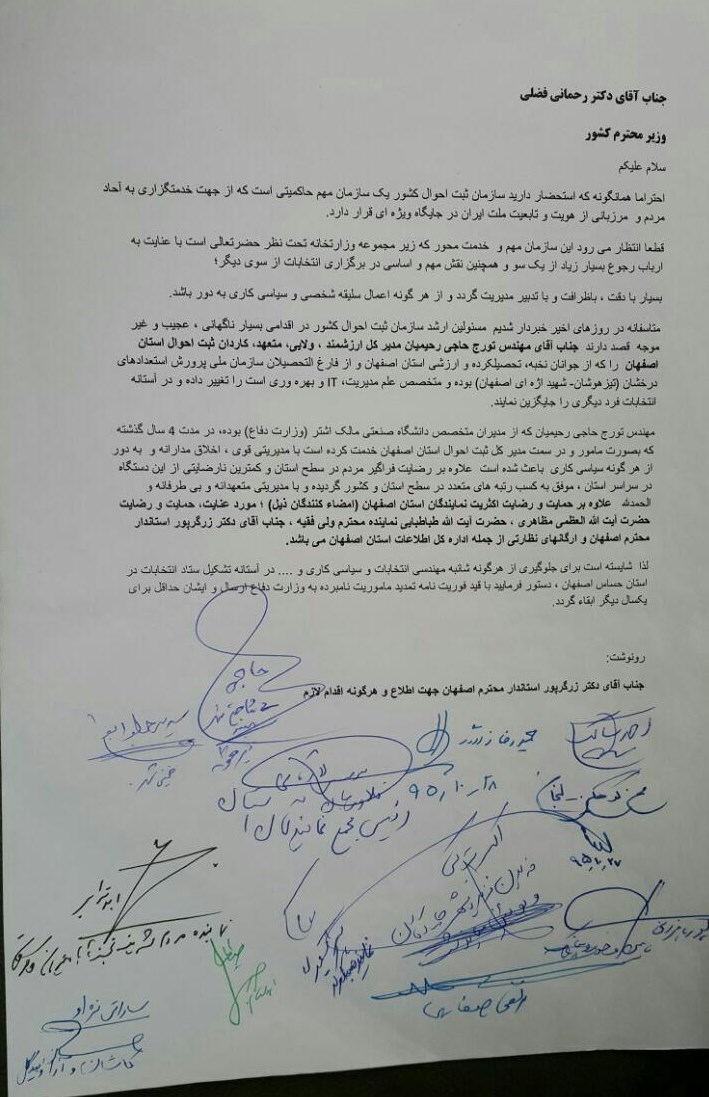 جناب آقای دکتر رحمانی فضلی
وزیر محترم کشور
سلام علیکم
احتراما همانگونه که استحضار دارید سازمان ثبت احوال کشور یک سازمان مهم حاکمیتی است که از جهت خدمتگزاری به آحاد
مردم و مرزبانی از هویت و تابعیت ملت ایران در جایگاه ویژه ای قرار دارد.
قطعا انتظار می رود این سازمان مهم و خدمت محور که زیر مجموعه وزارتخانه تحت نظر حضرتعالی است با عنایت به
ارباب رجوع بسیار زیاد از یک سو و همچنین نقش مهم و اساسی در برگزاری انتخابات از سوی دیگر؛
بسیار با دقت ، باظرافت و با تدبیر مدیریت گردد و از هر گونه اعمال سلیقه شخصی و سیاسی کاری به دور باشد.
متاسفانه در روزهای اخیر خبردار شدیم مسئولین ارشد سازمان ثبت احوال کشور در اقدامی بسیار ناگهانی ، عجیب و غیر
موجه قصد دارند جناب آقای مهندس تورج حاجی رحیمیان مدیر کل ارزشمند ، ولایی، متعهد، کاردان ثبت احوال استان
اصفهان را که از جوانان نخبه، تحصیلکرده و ارزشی استان اصفهان و از فارغ التحصیلان سازمان ملی پرورش استعدادهای
درخشان (تیزهوشان- شهید اژه ای اصفهان) بوده و متخصص علم مدیریت، IT و بهره وری است را تغییر داده و در آستانه
انتخابات فرد دیگری را جایگزین نمایند.
مهندس تورج حاجی رحیمیان که از مدیران متخصص دانشگاه صنعتی مالک اشتر (وزارت دفاع) بوده، در مدت 4 سال گذشته
که بصورت مامور و در سمت مدیر کل ثبت احوال استان اصفهان خدمت کرده است با مدیریتی قوی ، اخلاق مدارانه و به دور
از هر گونه سیاسی کاری باعث شده است علاوه بر رضایت فراگیر مردم در سطح استان و کمترین نارضایتی از این دستگاه
در سراسر استان ، موفق به کسب رتبه های متعدد در سطح استان و کشور گردیده و با مدیریتی متعهدانه و بی طرفانه و
الحمدلله علاوه بر حمایت و رضایت اکثریت نمایندگان استان اصفهان (امضاء کنندگان ذیل) ؛ مورد عنایت، حمایت و رضایت
حضرت آیت الله العظمی مظاهری ، حضرت آیت الله طباطبایی نماینده محترم ولی فقیه ، جناب آقای دکتر زرگرپور استاندار
محترم اصفهان و ارگانهای نظارتی از جمله اداره کل اطلاعات استان اصفهان می باشد.
لذا شایسته است برای جلوگیری از هرگونه شائبه مهندسی انتخابات و سیاسی کاری و .... در آستانه تشکیل ستاد انتخابات در
استان حساس اصفهان ، دستور فرمایید با قید فوریت نامه تمدید ماموریت نامبرده به وزارت دفاع ارسال و ایشان حداقل برای
یکسال دیگر ابقاء گردد.
رونوشت:
جناب آقای دکتر زرگرپور استاندار محترم اصفهان جهت اطلاع و هرگونه اقدام لازم
حاجی
رئیس مجمع نمایندگان
ابوترابی
نماینده مردم شریف نجف آباد
ساداتی نژاد
کاشان و آران و بیدگل